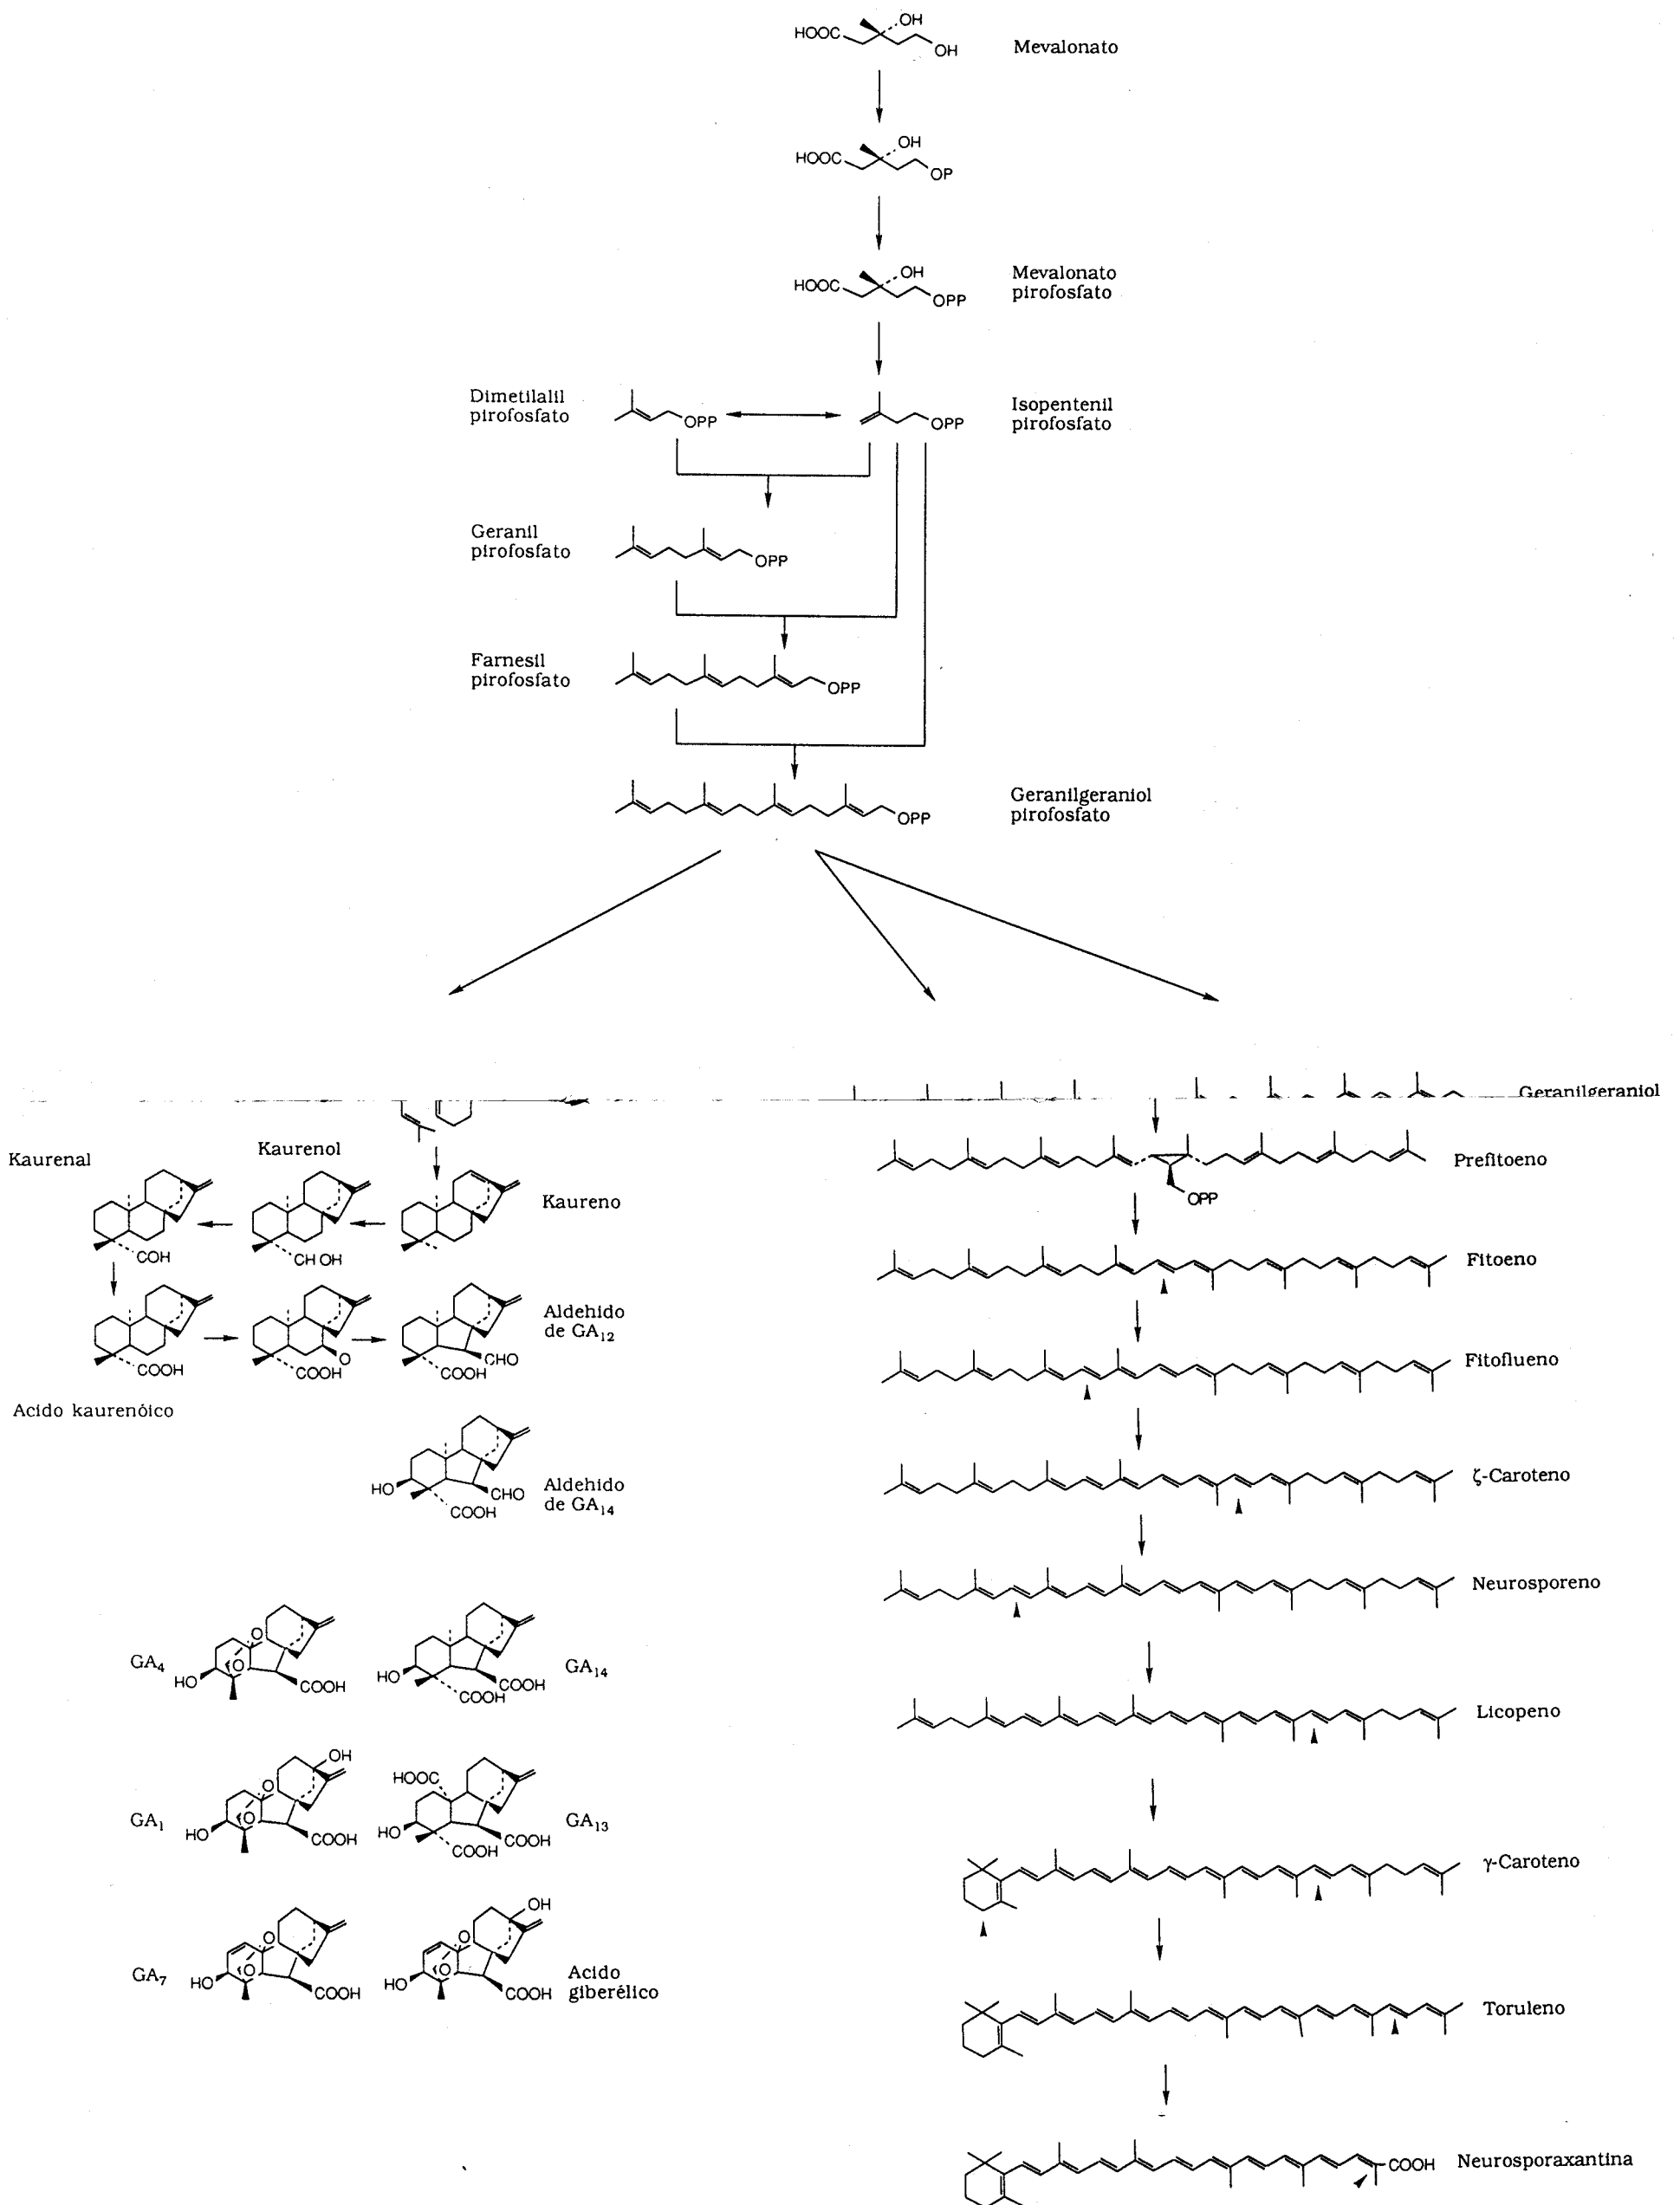 HOOC OH
OH
Mevalonato
HOOC OH
OP
HOOC OH
OPP
Mevalonato
pirofosfato
Dimetilalil
pirofosfato
OPP
OPP
Isopentenil
pirofosfato
Geranil
pirofosfato
OPP
Farnesil
pirofosfato
OPP
OPP
Geranilgeraniol
pirofosfato
Geranilgeraniol
Kaurenal
Kaurenol
Kaureno
COH
CH OH
COOH
COOH
O
COOH
CHO
Aldehido
de GA12
Acido kaurenóico
HO
COOH
CHO
Aldehido
de GA14
GA4
HO
O
O
COOH
HO
COOH
COOH
GA14
GA1
HO
O
O
OH
COOH
HOOC
HO
COOH
COOH
GA13
GA7
HO
O
O
COOH
HO
O
O
OH
COOH
Acido
giberélico
Prefitoeno
OPP
Fitoeno
Fitoflueno
ζ-Caroteno
Neurosporeno
Licopeno
γ-Caroteno
Toruleno
COOH
Neurosporaxantina